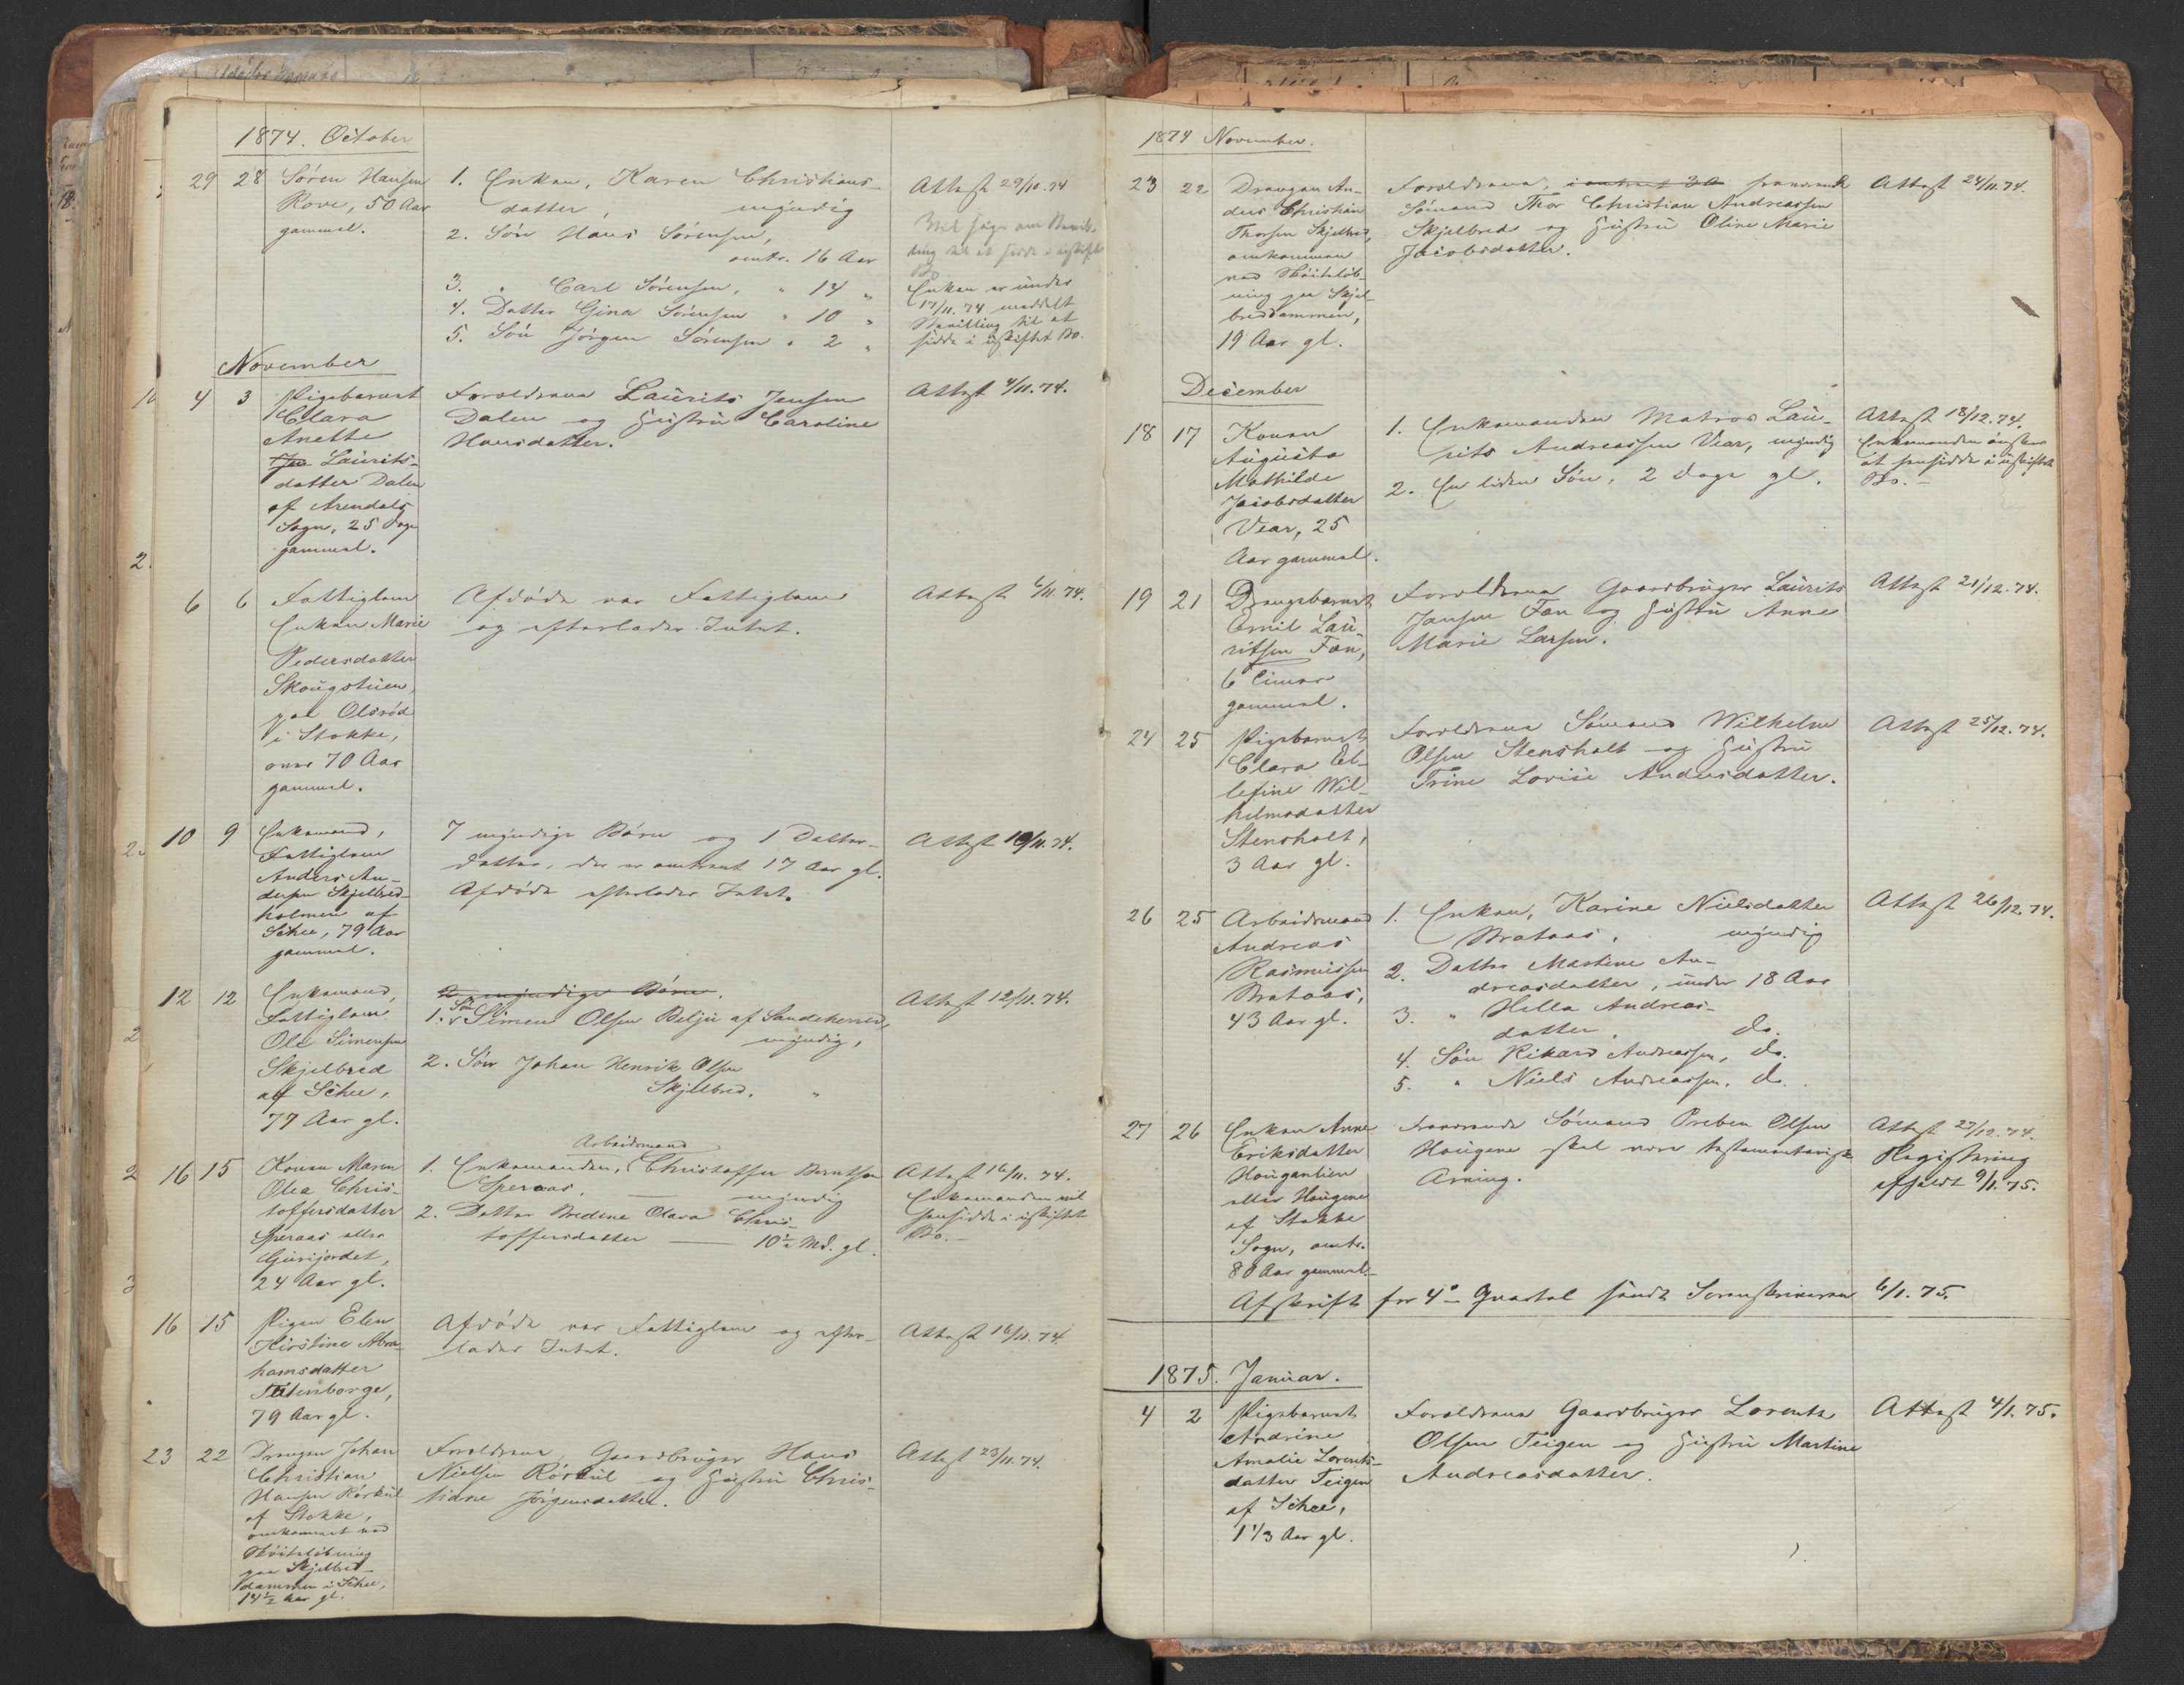 1874. October
29 28 Søren Hansen
Rove, 50 Aar
gammel.
1. Enken, Karen Christians-
datter, myndig
2. Søn Hans Sørensen,
omtr. 16 Aar
3. " Carl Sørensen, " 14 "
4. Datter Gina Sørensen " 10 "
5. Søn Jørgen Sørensen " 2 "
Attest 29/10.74
Vil søge om Bevil-
ling til at sidde i uskiftet
Bo
Enken er under
17/11.74 meddelt
Bevilling til at
sidde i uskiftet Bo.
November
4 3 Pigebarnet
Clara
Anette
Laurits-
datter Dalen
af Arendals
Sogn, 25 Dage
gammel.
Forældrene Laurits Jensen
Dalen og Hustru Caroline
Hansdatter.
Attest 4/11.74.
6 6 Fattiglem
Enken Marie
Pedersdatter
Skougstuen,
paa Olsrød
i Stokke,
over 70 Aar
gammel.
Afdøde var Fattiglem
og efterlader Intet.
Attest 6/11.74.
10 9 Enkemand,
Fattiglem
Anders An-
dersen Skjelbred-
holmen af
Sehee, 79 Aar
gammel.
7 myndige Børn og 1 Datter-
datter, der er omtrent 17 Aar gl.
Afdøde efterlader Intet.
Attest 10/11.74.
12 12 Enkemand,
Fattiglem
Ole Simensen
Skjelbred
af Sehee,
77 Aar gl.
2 myndige Børn.
1. Søn Simen Olsen Beljü af Sandeherred,
myndig,
2. Søn Johan Henrik Olsen
Skjelbred. "
Attest 12/11.74.
16 15 Konen Maren
Olea Chris-
toffersdatter
Speraas eller
Gürijordet,
24 Aar gl.
Arbeidsmand
1. Enkemanden, Christoffer Berntsen
Speraas, myndig
2. Datter Bredine Olava Chris-
toffersdatter 10½ Md. gl.
Attest 16/11.74.
Enkemanden vil
hensidde i uskiftet
Bo.
16 15 Pigen Elen
Kirstine Abra-
hamsdatter
Tutenborge,
79 Aar gl.
Afdøde var Fattiglem og efter-
lader Intet.
Attest 16/11.74.
23 22 Drengen Johan
Christian
Hansen Rørkül
af Stokke,
omkommet ved
Skøiteløbning
paa Skjelbred-
dammen i Sehee,
14½ Aar gl.
Forældrene Gaardbruger Hans
Nielsen Rørkül og Hustru Chris-
tidne Jørgensdatter.
Attest 23/11.74.
1874 November.
23 22 Drengen An-
ders Christian
Thorsen Skjelbred,
omkommen
ved Skøiteløb-
ning paa Skjel-
breddammen,
19 Aar gl.
Forældrene, fraværende
Sømand Thor Christian Andreassen
Skjelbred og Hustru Oline Marie
Jacobsdatter.
Attest 24/11.74.
December
18 17 Konen
Augusta
Mathilde
Jacobsdatter
Vear, 25
Aar gammel.
1. Enkemanden Matros Lau-
rits Andreassen Vear, myndig
2. En liden Søn, 2 Dage gl.
Attest 18/12.74.
Enkemanden ønsker
at hensidde i uskiftet
Bo.
19 21 Drengebarnet
Emil Lau-
ritsen Fæn,
6 Timer
gammel.
Forældrene Gaardbruger Laurits
Jansen Fæn og Hustru Anne
Marie Larsen.
Attest 21/12.74.
24 25 Pigebarnet
Clara El-
lefine Wil-
helmsdatter
Stensholt,
3 Aar gl.
Forældrene Sømand Wilhelm
Olsen Stensholt og Hustru
Trine Lovise Andersdatter.
Attest 25/12.74.
26 25 Arbeidsmand
Andreas
Rasmussen
Brataas,
43 Aar gl.
1. Enken, Karine Nielsdatter
Brataas, myndig
2. Datter Mastine An-
dreasdatter, under 18 Aar
3. " Hella Andreas-
datter, do.
4. Søn Rikard Andreassen, do.
5. " Niels Andreassen, do.
Attest 26/12.74.
27 26 Enken Anne
Eriksdatter
Haugantien
eller Haugene
af Stokke
Sogn, omtr.
80 Aar gammel.
Fraværende Sømand Preben Olsen
Haugene skal være testamentarisk
Arving.
Attest 27/12.74.
Registrering
afholdt 9/1.75.
Afskrift for 4de Quartal sendt Sorenskriveren 6/1.75.
1875. Januar.
4 2 Pigebarnet
Andrine
Amalie Lorents-
datter Teigen
af Sehee,
1 1/3 Aar gl.
Forældrene Gaardbruger Lorents
Olsen Teigen og Hustru Martine
Andreasdatter.
Attest 4/1.75.